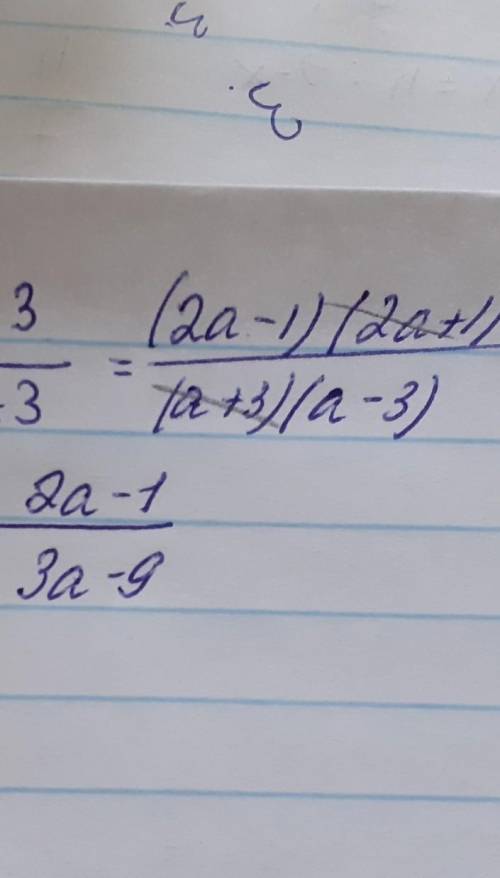 3
-3
= (2a-1)(2a+1)
(a+3)(a-3)
2a-1
3a-9